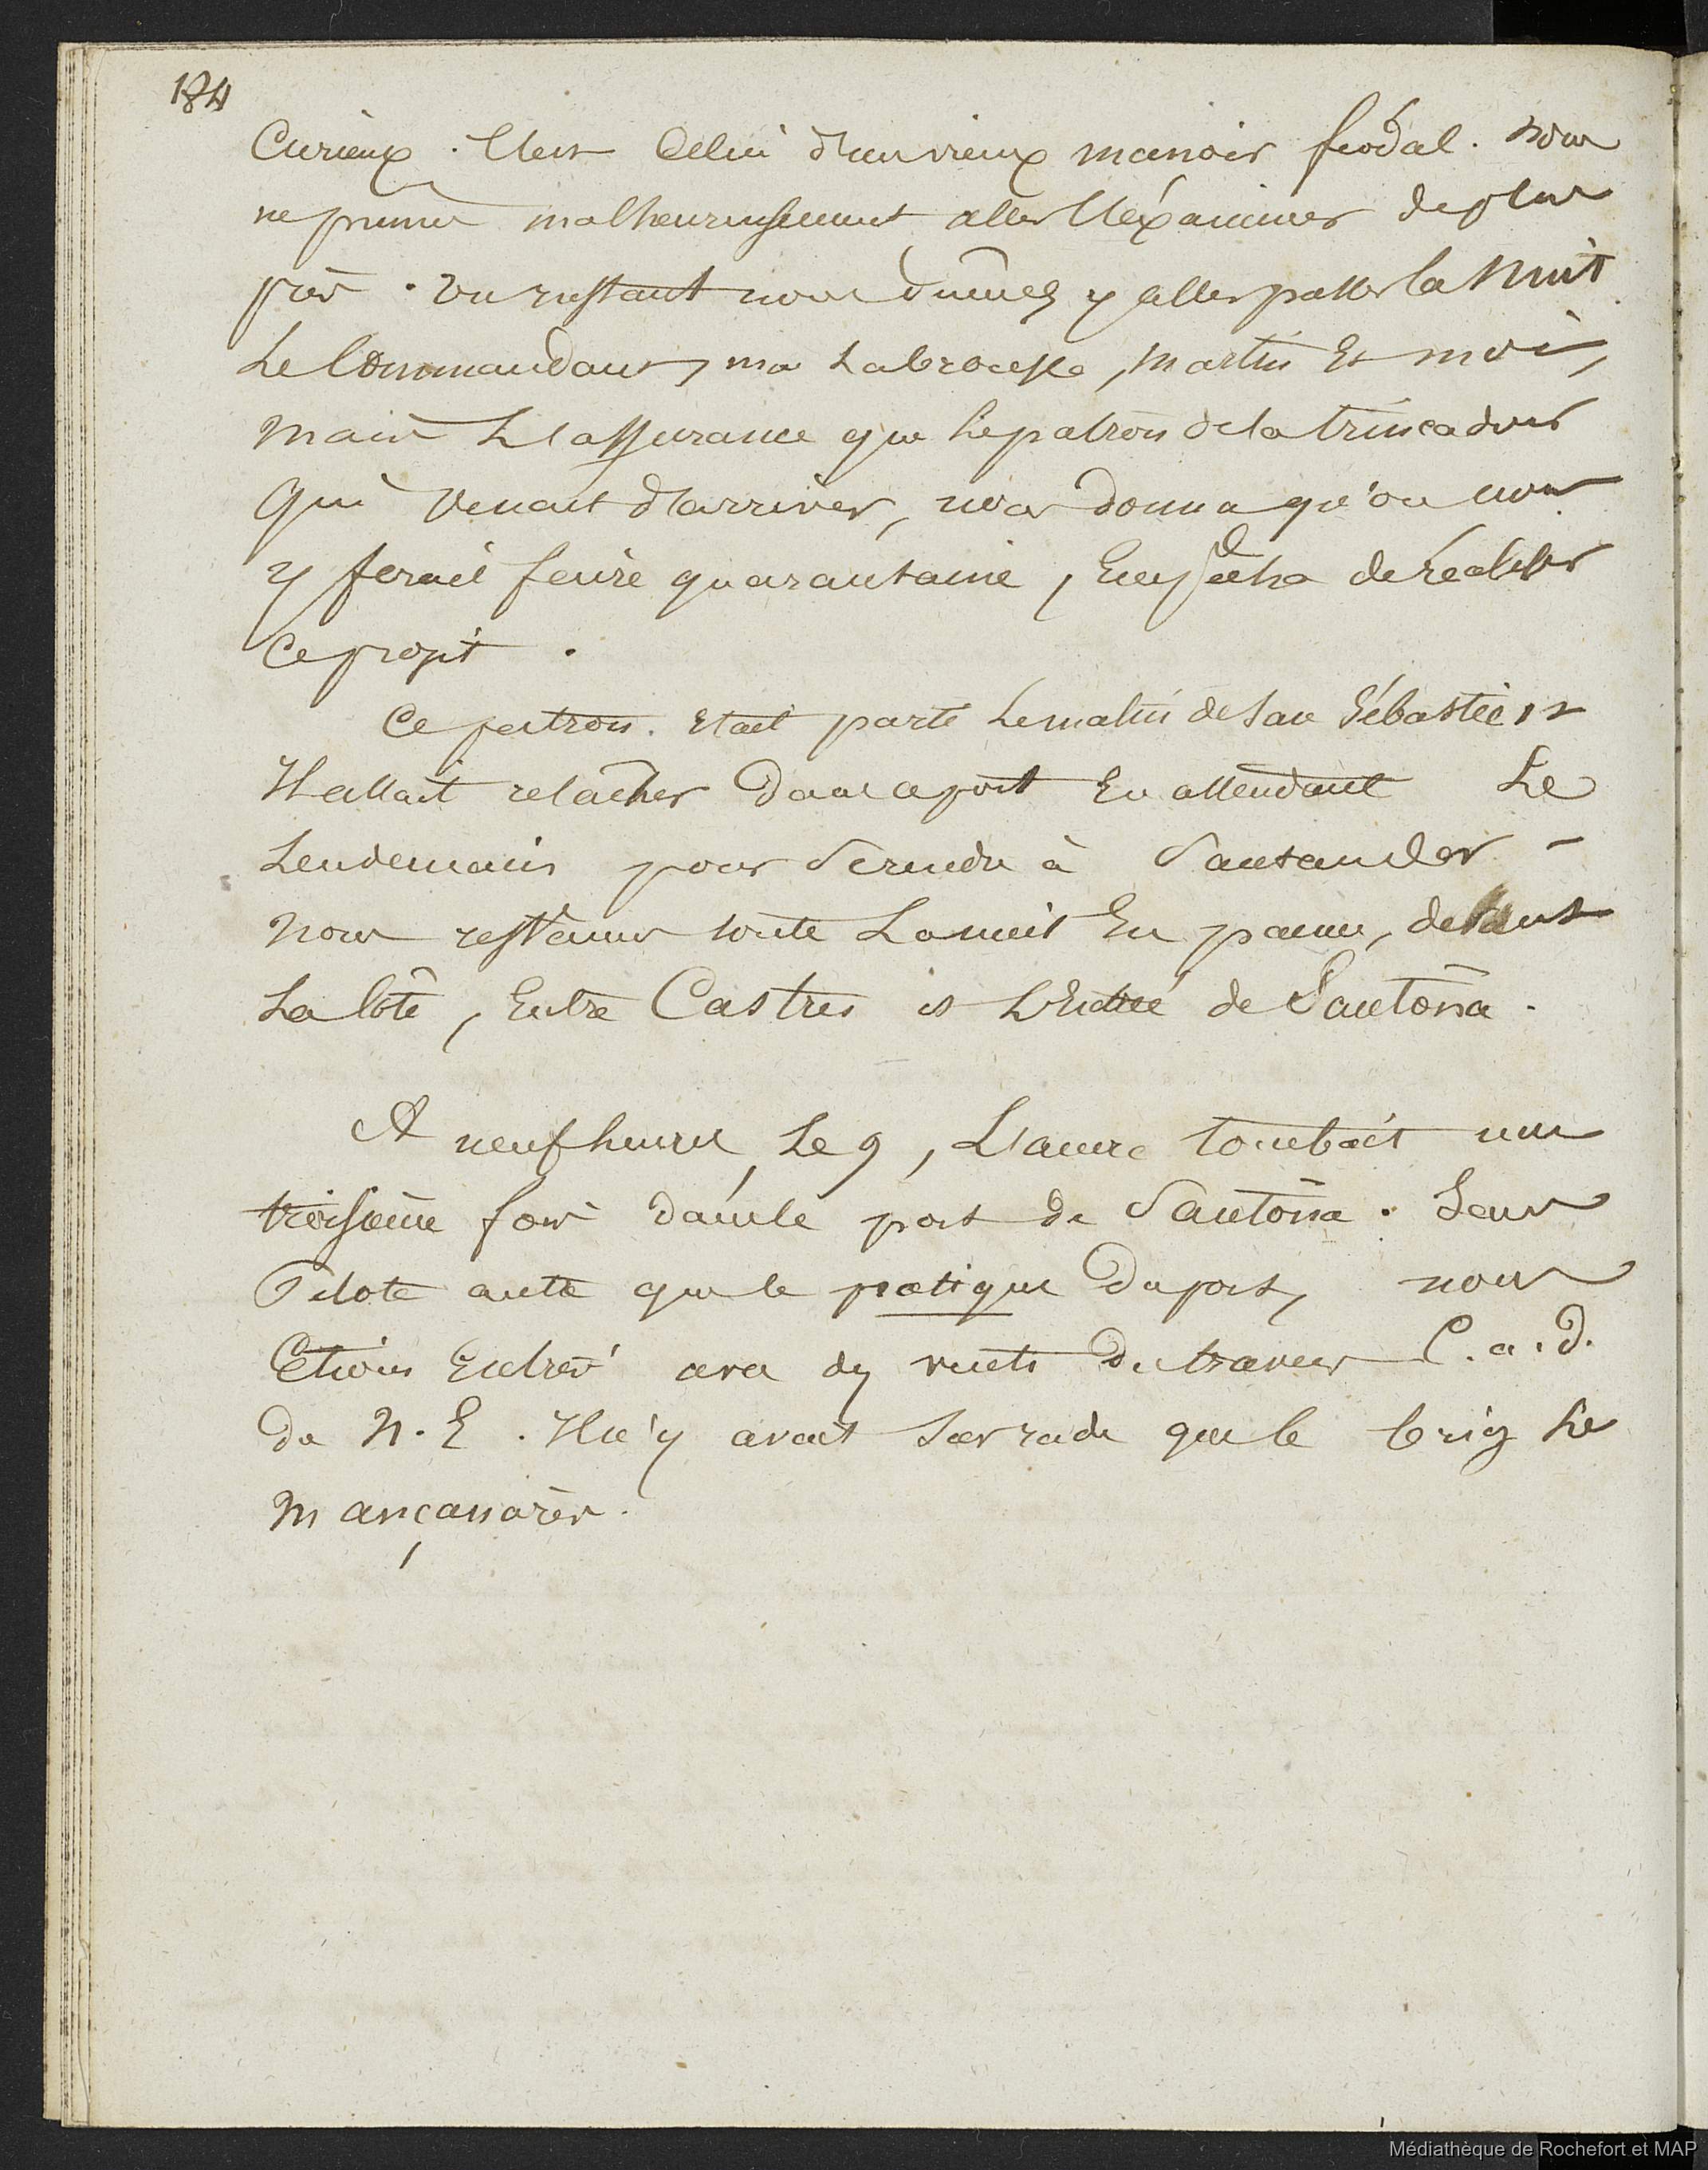 184
Curieux. C'est Celui d'un vieux manoir féodal. nous
ne pumes malheureusement aller l'éxaminer de plus
près. Un instant nous dumes y aller passer la Nuit
Le Commandant, Labrousse, Martin Et moi,
mais L'assurance que le patron de la trincadour
qui Venait d'arriver, nous donna qu'on nous
y ferait faire quarantaine, Empêcha de réaliser
Ce projet.
Ce patron. Etait parti Le matin de San Sébastien
Il allait relâcher dans ce port En attendant Le
Lendemain pour se rendre à Santander -
nous restames toute La nuit En panne, devant
La Côte, Entre Castres et L'Entrée de Santona.
A neuf heures, Le 9, L'ancre tombait une
troisième fois dans le port de Santona. Sans
Pilote autre que le pratique du port, nous
Etions Entrés avec des vents de travers C.a.d.
de N.E. Il n'y avait sur rade que le brig Le
Mançanarès.
Médiathèque de Rochefort et MAP